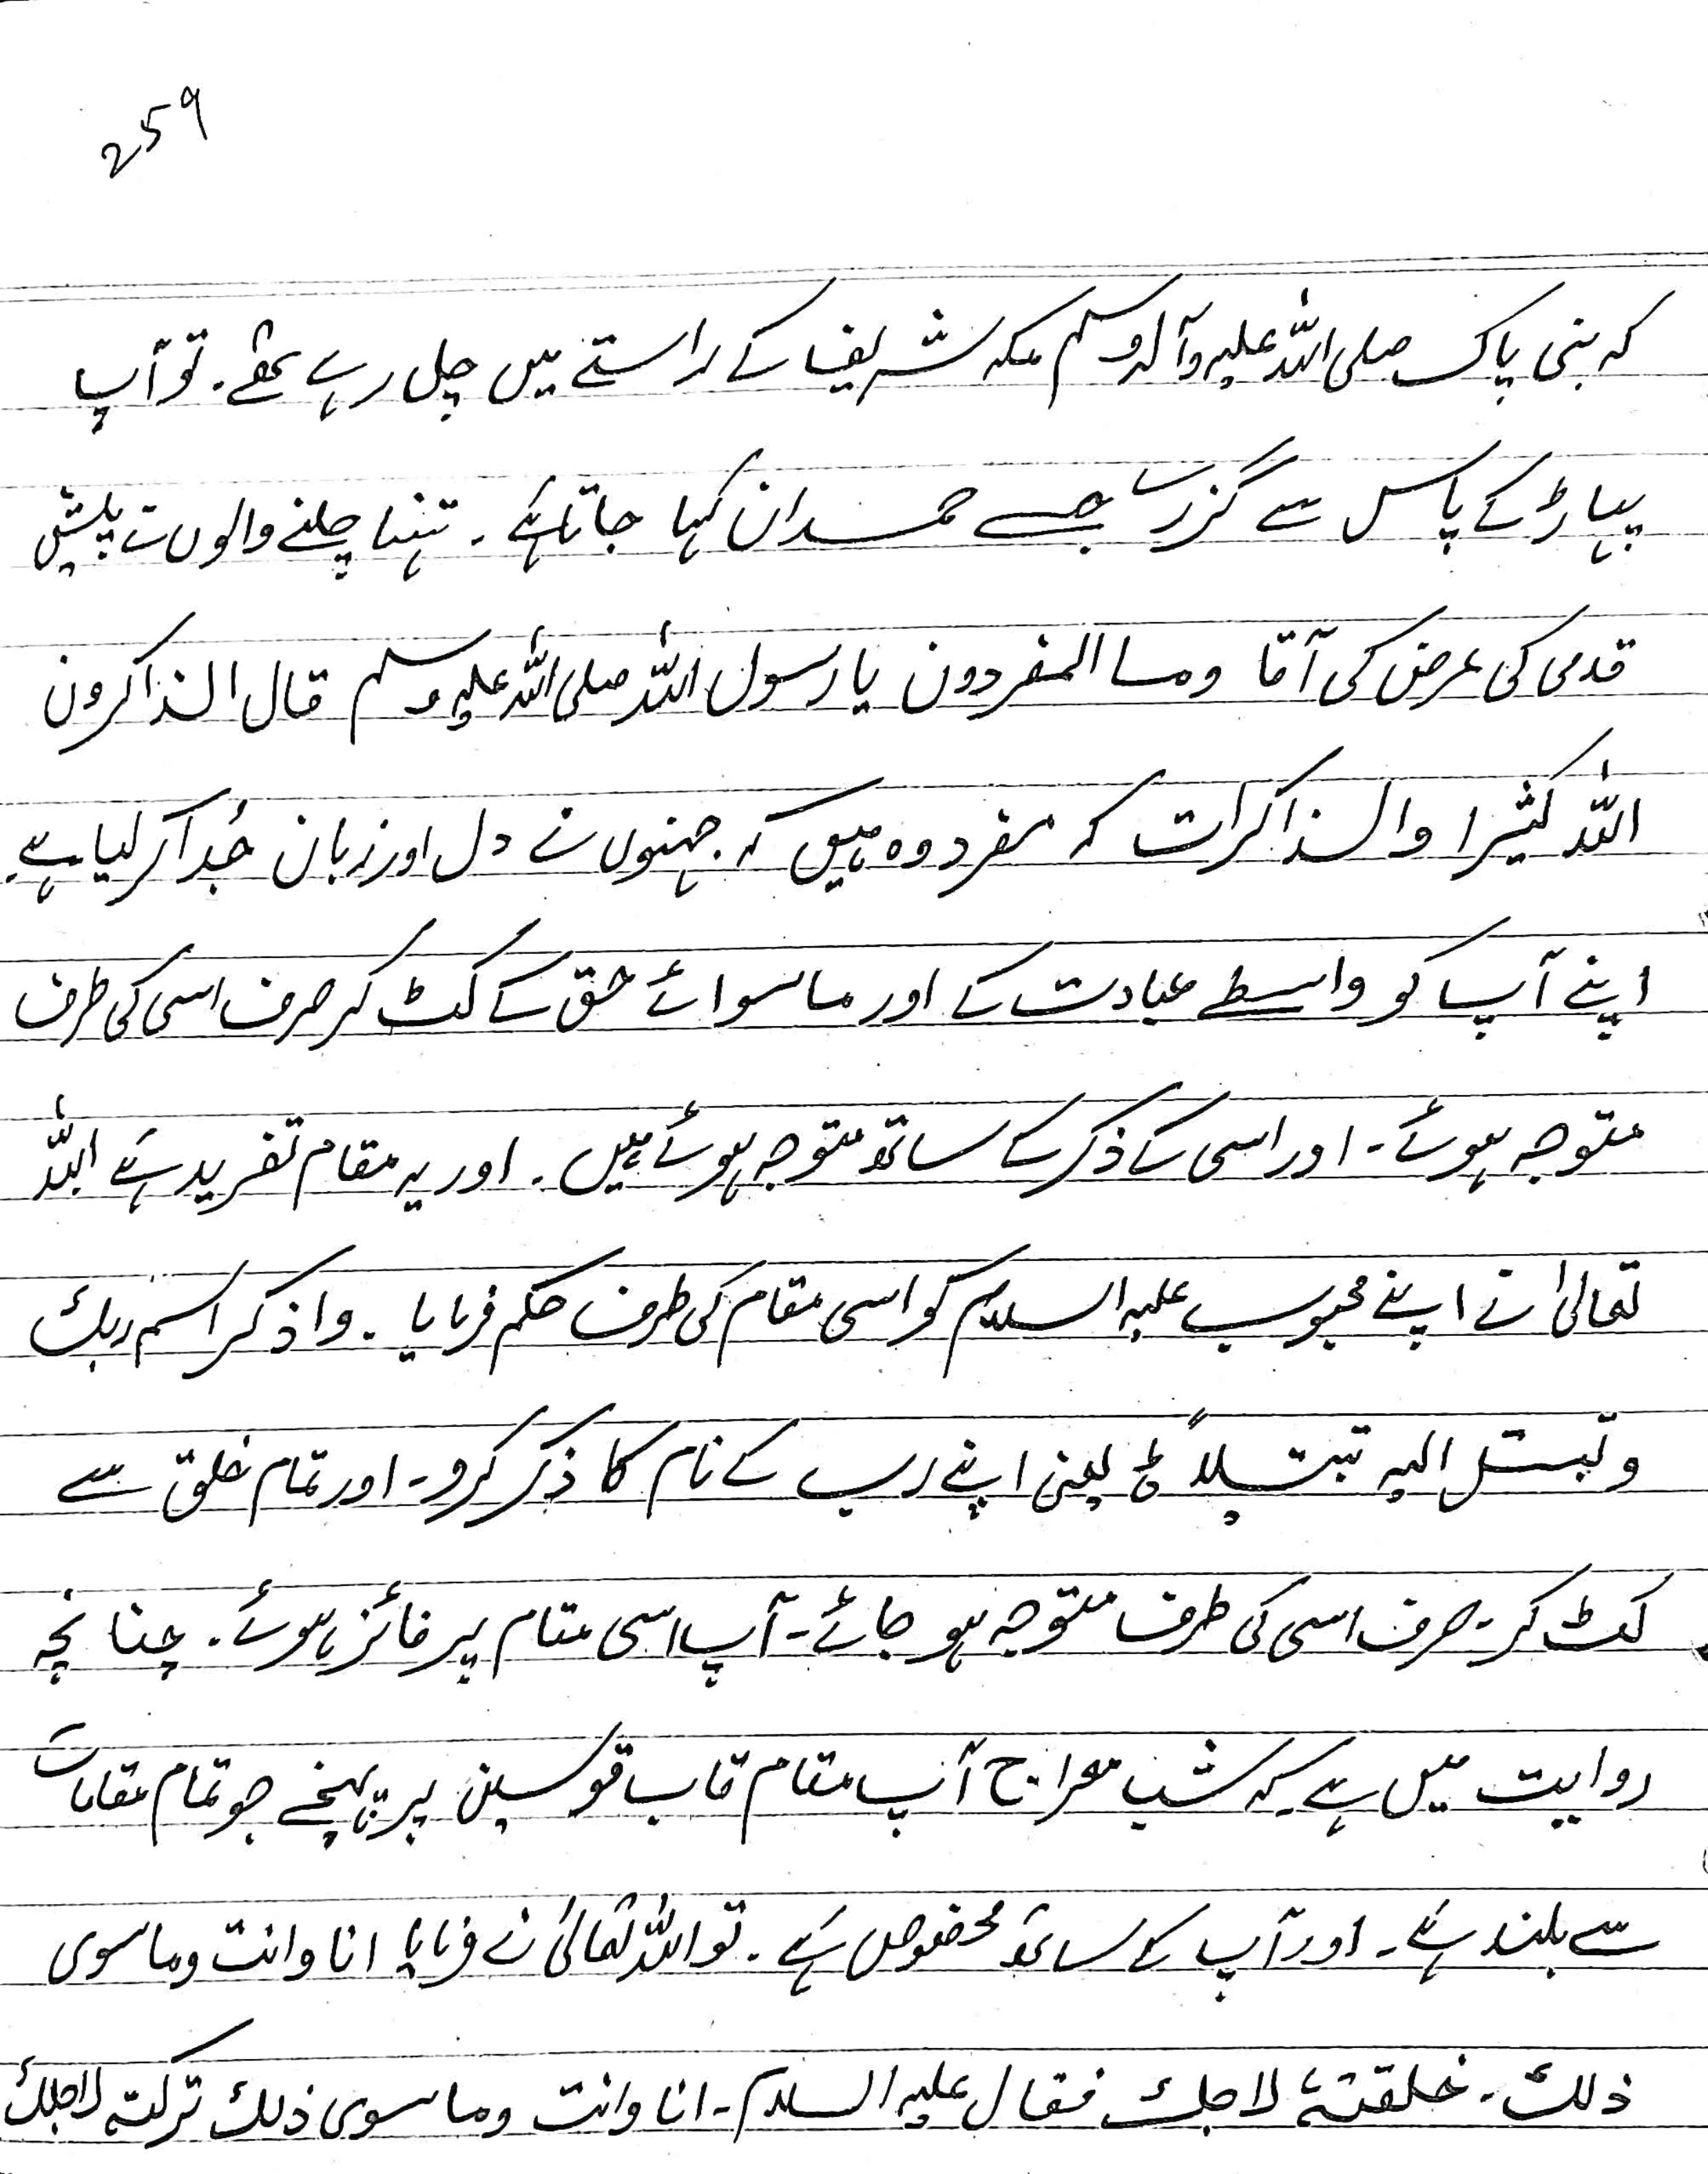 259
کہ نبی پاک صلی اللہ علیہ وآلہ وسلم مکہ شریف کے راستے میں چل رہے تھے۔ تو آپ
پہاڑ کے پاس سے گزرے جسے حمدان کہا جاتا ہے۔ تنہا چلنے والوں نے پیش
قدمی کی عرض کی آقا وما المفردون یا رسول اللہ صلی اللہ علیہ وسلم قال الذاکرون
اللہ کثیرا والذاکرات کہ مفرد وہ ہیں کہ جہنوں نے دل اور زبان جُدا کر لیا ہے۔
اپنے آپ کو واسطے عبادت کے اور ماسوائے حق کے کٹ کر صرف اسی کی طرف
متوجہ ہوئے۔ اور اسی کے ذکر کے ساتھ متوجہ ہوئے ہیں۔ اور یہ مقام تفرید ہے اللہ
تعالیٰ نے اپنے محبوب علیہ السلام کو اسی مقام کی طرف حکم فرمایا۔ واذکر اسم ربک
وتبتل الیہ تبتیلاً ط یعنی اپنے رب کے نام کا ذکر کرو۔ اور تمام خلق سے
کٹ کر۔ صرف اسی کی طرف متوجہ ہو جائے۔ آپ اسی مقام پر فائز ہوئے۔ چنانچہ
روایت میں ہے کہ شب معراج آپ مقام قاب قوسین پر پہنچے جو تمام مقامات
سے بلند ہے۔ اور آپ کے ساتھ مخصوص ہے۔ تو اللہ تعالیٰ نے فرمایا انا وانت وما سوی
ذلک۔ خلقتہٗ لاجلک فقال علیہ السلام۔ انا وانت وما سوی ذلک ترکتہ لاجلک